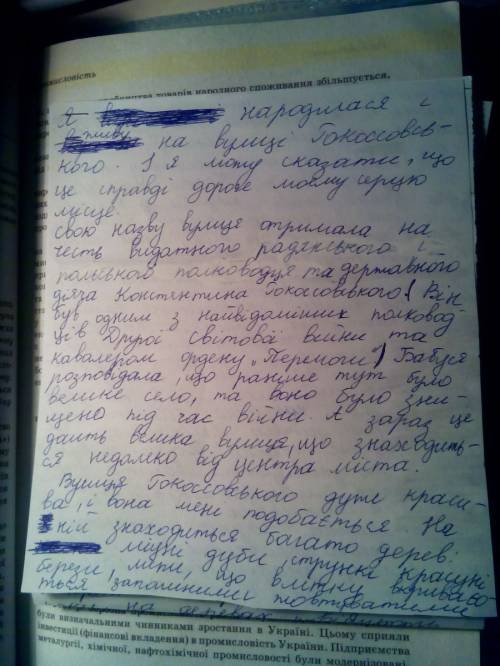 мисловість
товарів народного споживання збільшується,
Я народилася і
живу на вулиці Рокоссовсь-
кого. І я можу сказати, що
це справді дороге моєму серцю
місце.
Свою назву вулиця отримала на
честь видатного радянського і
польського полководця та державного
діяча Констянтина Рокоссовського (Він
був одним з найвідоміших полковод-
ців Другої світової війни та
кавалером ордену „Перемоги") Бабуся
розповідала, що раніше тут було
велике село, та воно було зни-
щено під час війни. А зараз це
досить велика вулиця, що знаходить-
ся недалеко від центра міста.
Вулиця Рокоссовського дуже краси-
ва, і вона мені подобається. На
ній знаходиться багато дерев:
міцні дуби, стрункі красуні
берези, липи, що влітку вкривають-
ться запашними жовтуватими
були визначальними чинниками зростання в Україні. Цьому сприяли
інвестиції (фінансові вкладення) в промисловість України. Підприємства
металургії, хімічної, нафтохімічної промисловості були модернізова